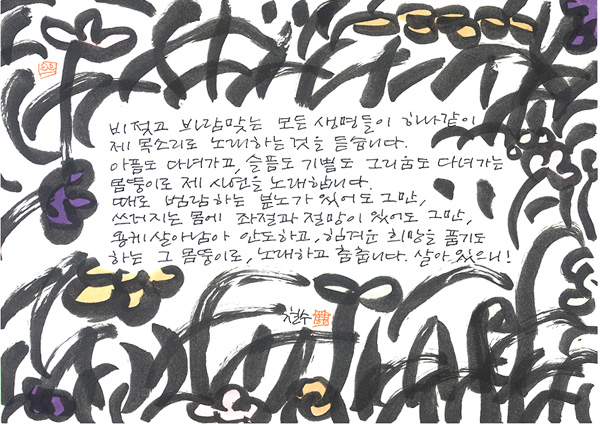 비젖고 바람맞는 모든 생명들이 하나같이
제 목소리로 노래하는것을 듣습니다.
아픔도 다녀가고, 슬픔도 기쁨도 그리움도 다녀가는
몸뚱이로 제 사연을 노래합니다.
때로 범람하는 분노가 있어도 그만,
쓰러지는 몸에 좌절과 절망이 있어도 그만,
용케살아남아 안도하고, 힘겨운 희망을 품기도
하는 그 몸뚱이로, 노래하고 춤춥니다. 살아 있으니!
철수